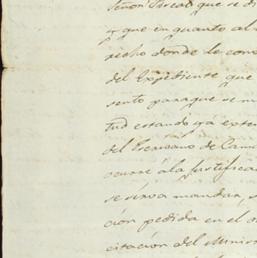 Señor Fiscal que se di
y que en quanto al
recho donde le conv
del Expediente que
sente paraque se m
tud estando ya exten
del Escrivano de Cam
ocurre á la justifica
se sirva mandar, 
ción pedida en el o
citación del Minis